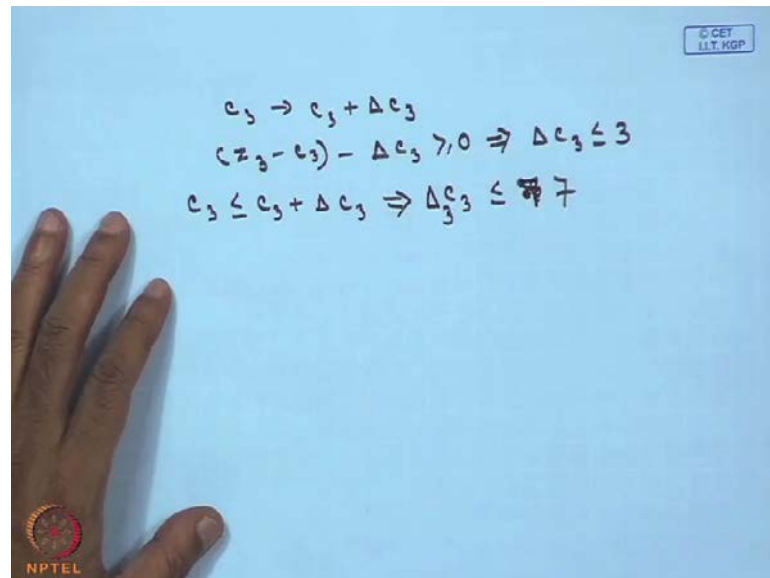 © CET
I.I.T. KGP
c₃ → c₃ + Δc₃
(z₃ - c₃) - Δc₃ ≥ 0 ⇒ Δc₃ ≤ 3
c₃ ≤ c₃ + Δc₃ ⇒ Δ₃c₃ ≤ 7
NPTEL